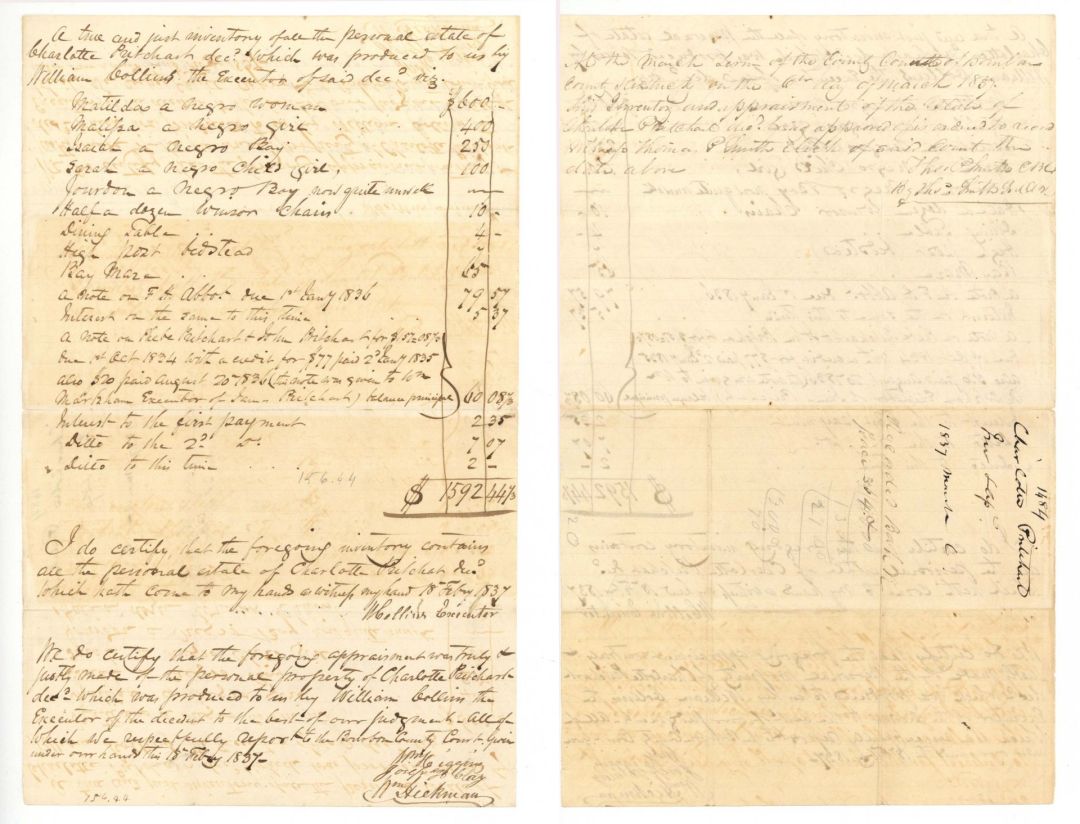 A true and just inventory of all the personal estate of
Charlotte Pritchart decd. which was produced to us by
William Collins the Executor of said decd. viz.
Matilda a negro woman $600 –
Malissa a negro girl 400
Isaiah a negro Boy 250
Sarah a negro Child girl, 100
Jourdon a Negro Boy now quite unwell –
Half a dozen Winsor Chairs 10 –
Dining Table 4 –
High post bedstead
Bay Mare 65
A note on F. H. Abbot due 1st Jany 1836 79 57
Interest on the same to this time 5 37
A note on Pritchart & John Pritchart for
due 1st Oct 1834 with a credit for $77 paid 2d Jany 1835
also $20 paid August 20th (this note was given to Wm
Markham Executor of Pritchart) balance principle 60 08 1/3
Interest to the first payment 2 35
Ditto to the 2d do. 7 07
Ditto to this time 2 –
156.44
$ 1592 44 1/3
I do certify, that the foregoing inventory contains
all the personal estate of Charlotte Pritchart decd.
which hath come to my hands witness my hand 18th Feby 1837
W Collins Executor
We do certify that the foregoing appraisment was truly &
justly made of the personal property of Charlotte Pritchart
decd. which was produced to us by William Collins the
Executor of the decedent to the best of our judgment – All of
which we respectfully report to the Bourbon County Court given
under our hands this 18th Feby 1837 –
Wm Higgins
Clay
Wm Hickman
156.44
At the March Term of the County Court of Bourbon
County held on the 6th day of March 1837
This Inventory and appraisment of the Estate of
Charlotte Pritchart decd. being approved of is ordered to record
Thomas P Smith Clerk of said Court the
date above
Thos P Smith C B C
By
1484
Charlotte Pritchard
Inv &
1837 March C.
Recorded Book
page